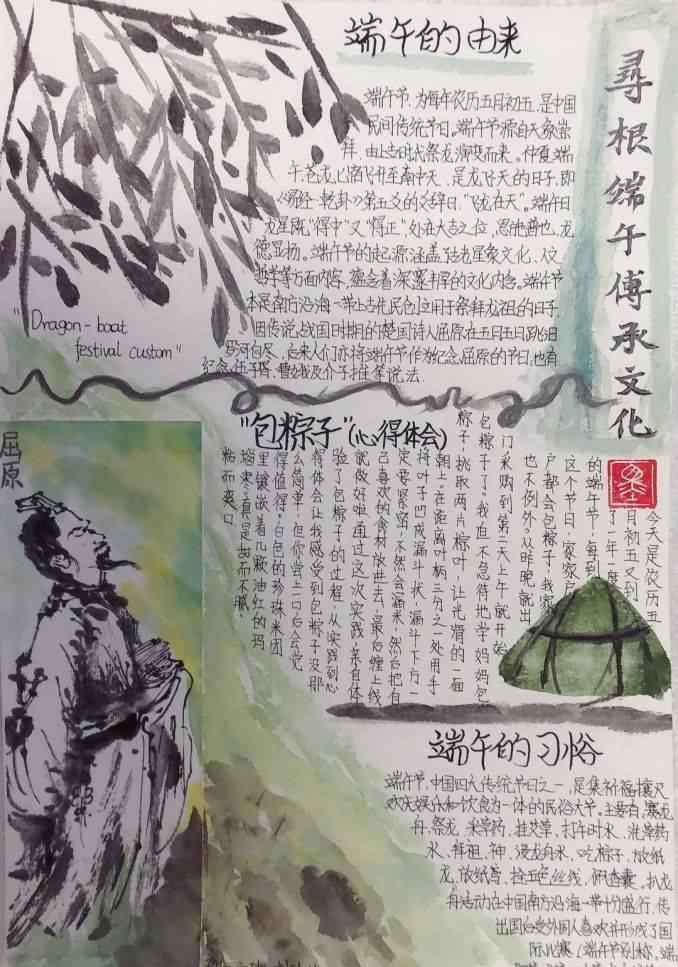 端午的由来
尋根端午傅承文化
端午节，为每年农历五月初五，是中国
民间传统节日。端午节源自天象崇
拜，由上古时代祭龙演变而来。仲夏端
午，苍龙七宿飞升至南中天，是龙飞天的日子，即
《易经·乾卦》第五爻的爻辞曰："飞龙在天"。端午日
龙星既"得中"又"得正"，处在大吉之位，恩泽普也，龙
德显扬。端午节的起源涵盖了古老星象文化、人文
哲学等方面内容，蕴含着深邃丰厚的文化内含。端午节
本是南方沿海一带上古先民创立用于祭拜龙祖的日子，
因传说战国时期的楚国诗人屈原在五月五日跳汨
罗河自尽，后来人们亦将端午节作为纪念屈原的节日，也有
纪念伍子胥、曹娥及介子推等说法.
"Dragon-boat
festival custom"
"包粽子"(心得体会)
今天是农历五
月初五又到
了一年一度
的端午节，每到
这个节日，家家户
户都会包粽子，我家
也不例外，从昨晚就出
门采购到第二天上午就开始
包粽子了。我迫不急待地学妈妈包
粽子，挑取两片粽叶，让光滑的一面
朝上，在距离叶柄三分之一处用手
将叶子凹成漏斗状，漏斗下方一
定要紧密，不然会漏米，然后把自
己喜欢的食材放进去，最后缠上线
就做好啦，通过这次实践，亲自体
验了包粽子的过程，从实践到心
得体会让我感受到包粽子没那
么简单，但你尝上一口后会觉
得值得。白色的珍珠米团
里镶嵌着几颗油红的玛
瑙枣，真是甜而不腻，
粘而爽口
屈原
端午的习俗
端午节，中国四大传统节日之一，是集祈福攘灾
欢庆娱乐和饮食为一体的民俗大节。主要有，赛龙
舟，祭龙，采草药，挂艾草，打午时水，洗草药
水，拜祖，神，浸龙舟水，吃粽子，放纸
龙，放纸鸢，拴五色丝线，佩香囊。扒龙
舟活动在中国南方沿海一带十分盛行，传
出国后受外国人喜欢并形成了国
际比赛（端午节别称，端